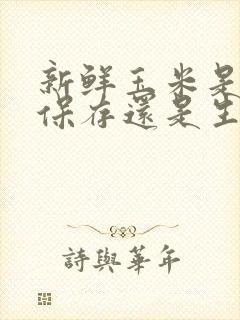 新鮮玉米是
保存還是生
詩與華年